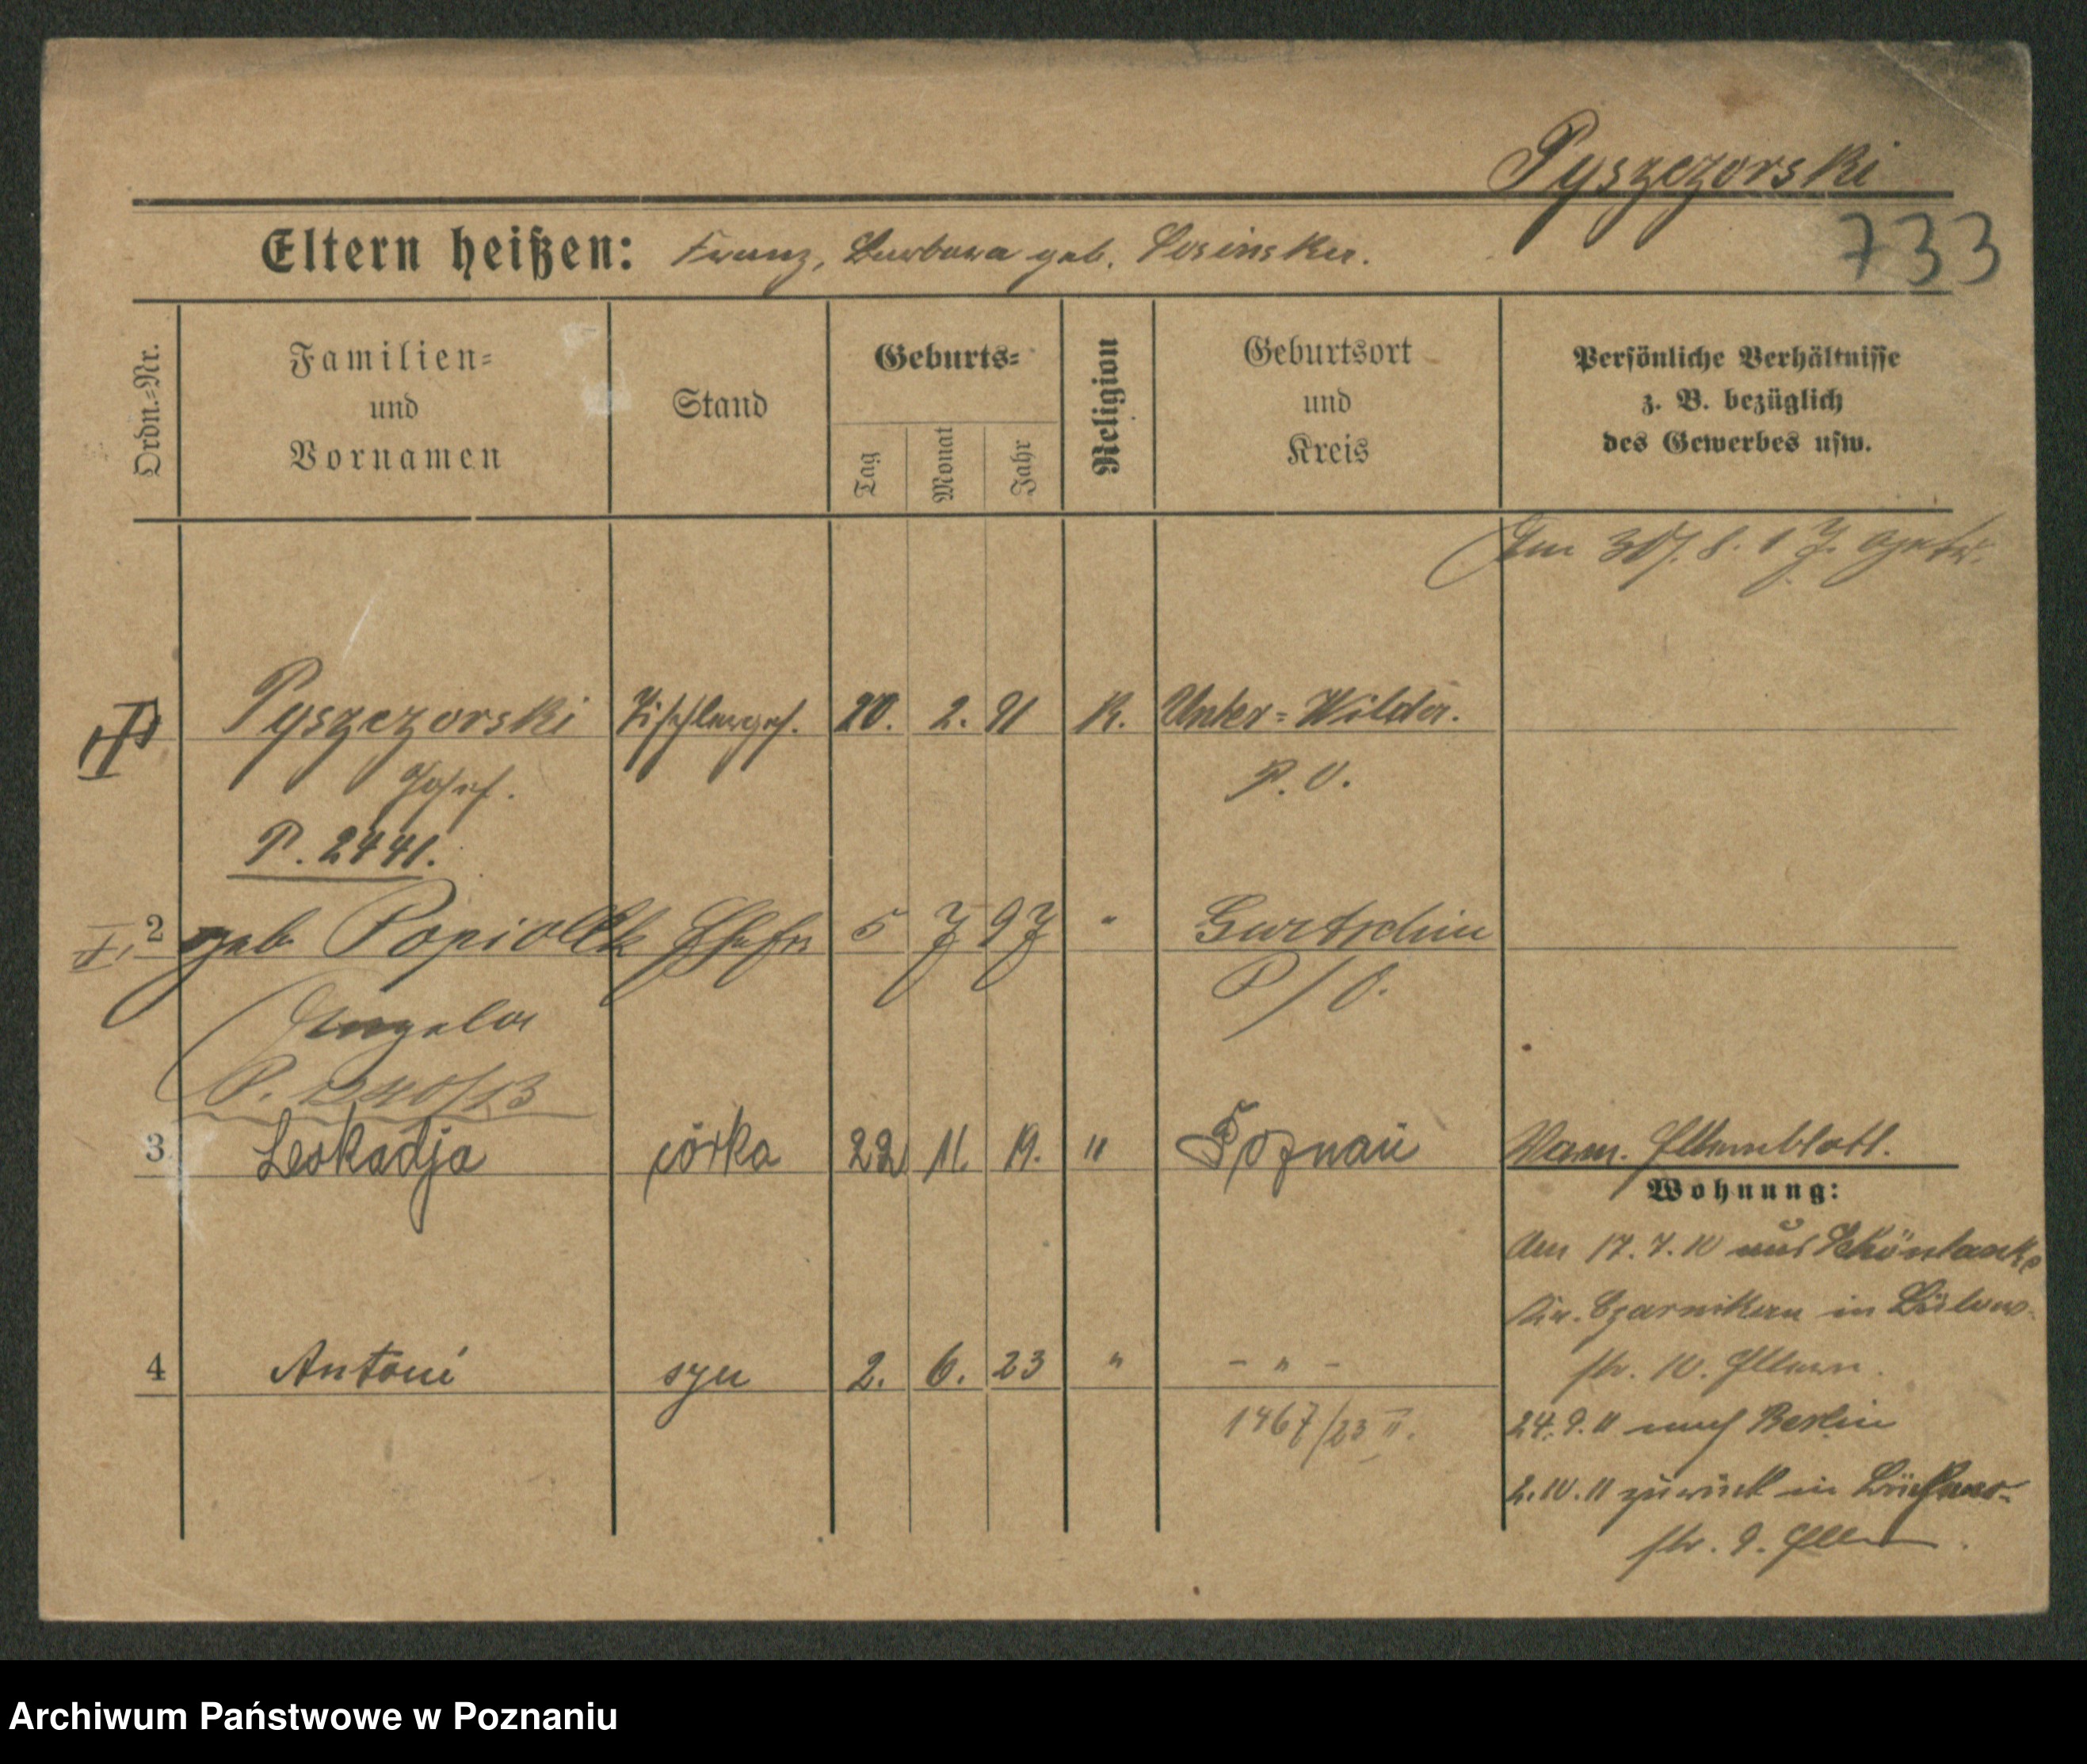 Pyszczorski
733
Eltern heißen: Franz, Barbara geb. Losinska.
Ordn.-Nr.
Familien- und Vornamen
Stand
Geburts-
Tag
Monat
Jahr
Religion
Geburtsort und Kreis
Persönliche Verhältnisse
z. B. bezüglich
des Gewerbes usw.
Pyszczorski Tischlerges. 20. 2. 91 K. Unter-Wilda.
Josef. P. O.
P. 2441.
2 geb. Popiollek Ehefr 5 7 97 " Gurtschin
Angela P/O.
P. 1240/13
3 Leokadja córka 22 11. 19. " Poznań
Elternblatt.
Wohnung:
Am 17.7.10 aus Schönlanke
Kr. Czarnikau in
str. 10. Eltern.
4 Antoni syn 2. 6. 23 " - " -
1467/23 II.
24.9.11 nach Berlin
2.10.11 zurück in
str. 9. Eltern.
Archiwum Państwowe w Poznaniu